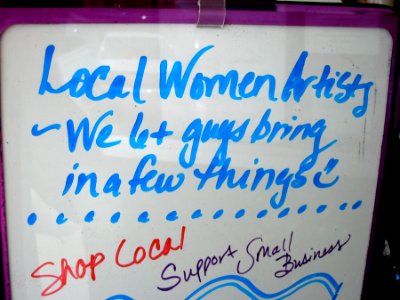 Local Women Artists
~ We let guys bring
in a few things :)
Shop Local
Support Small
Business